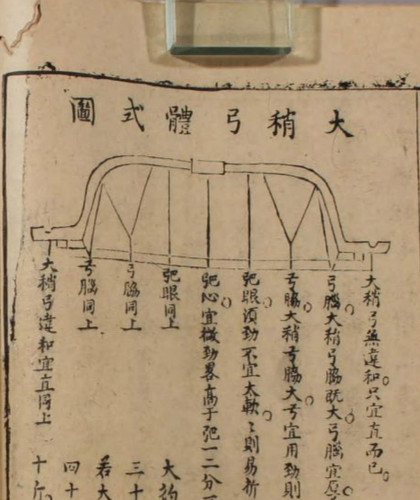 大稍弓體式圖
大稍弓無違和只宜直而已
弓腦大稍弓腦旣大弓腦宜
弓腦大稍弓腦大弓宜用勁則
弝眼須勁不宜太軟軟則易折
弝心宜微勁畧高于弝一二分
弝眼同上
弓腦同上
弓腦同上
大稍弓違和宜直同上
大約
三十
若大
四十
十斤